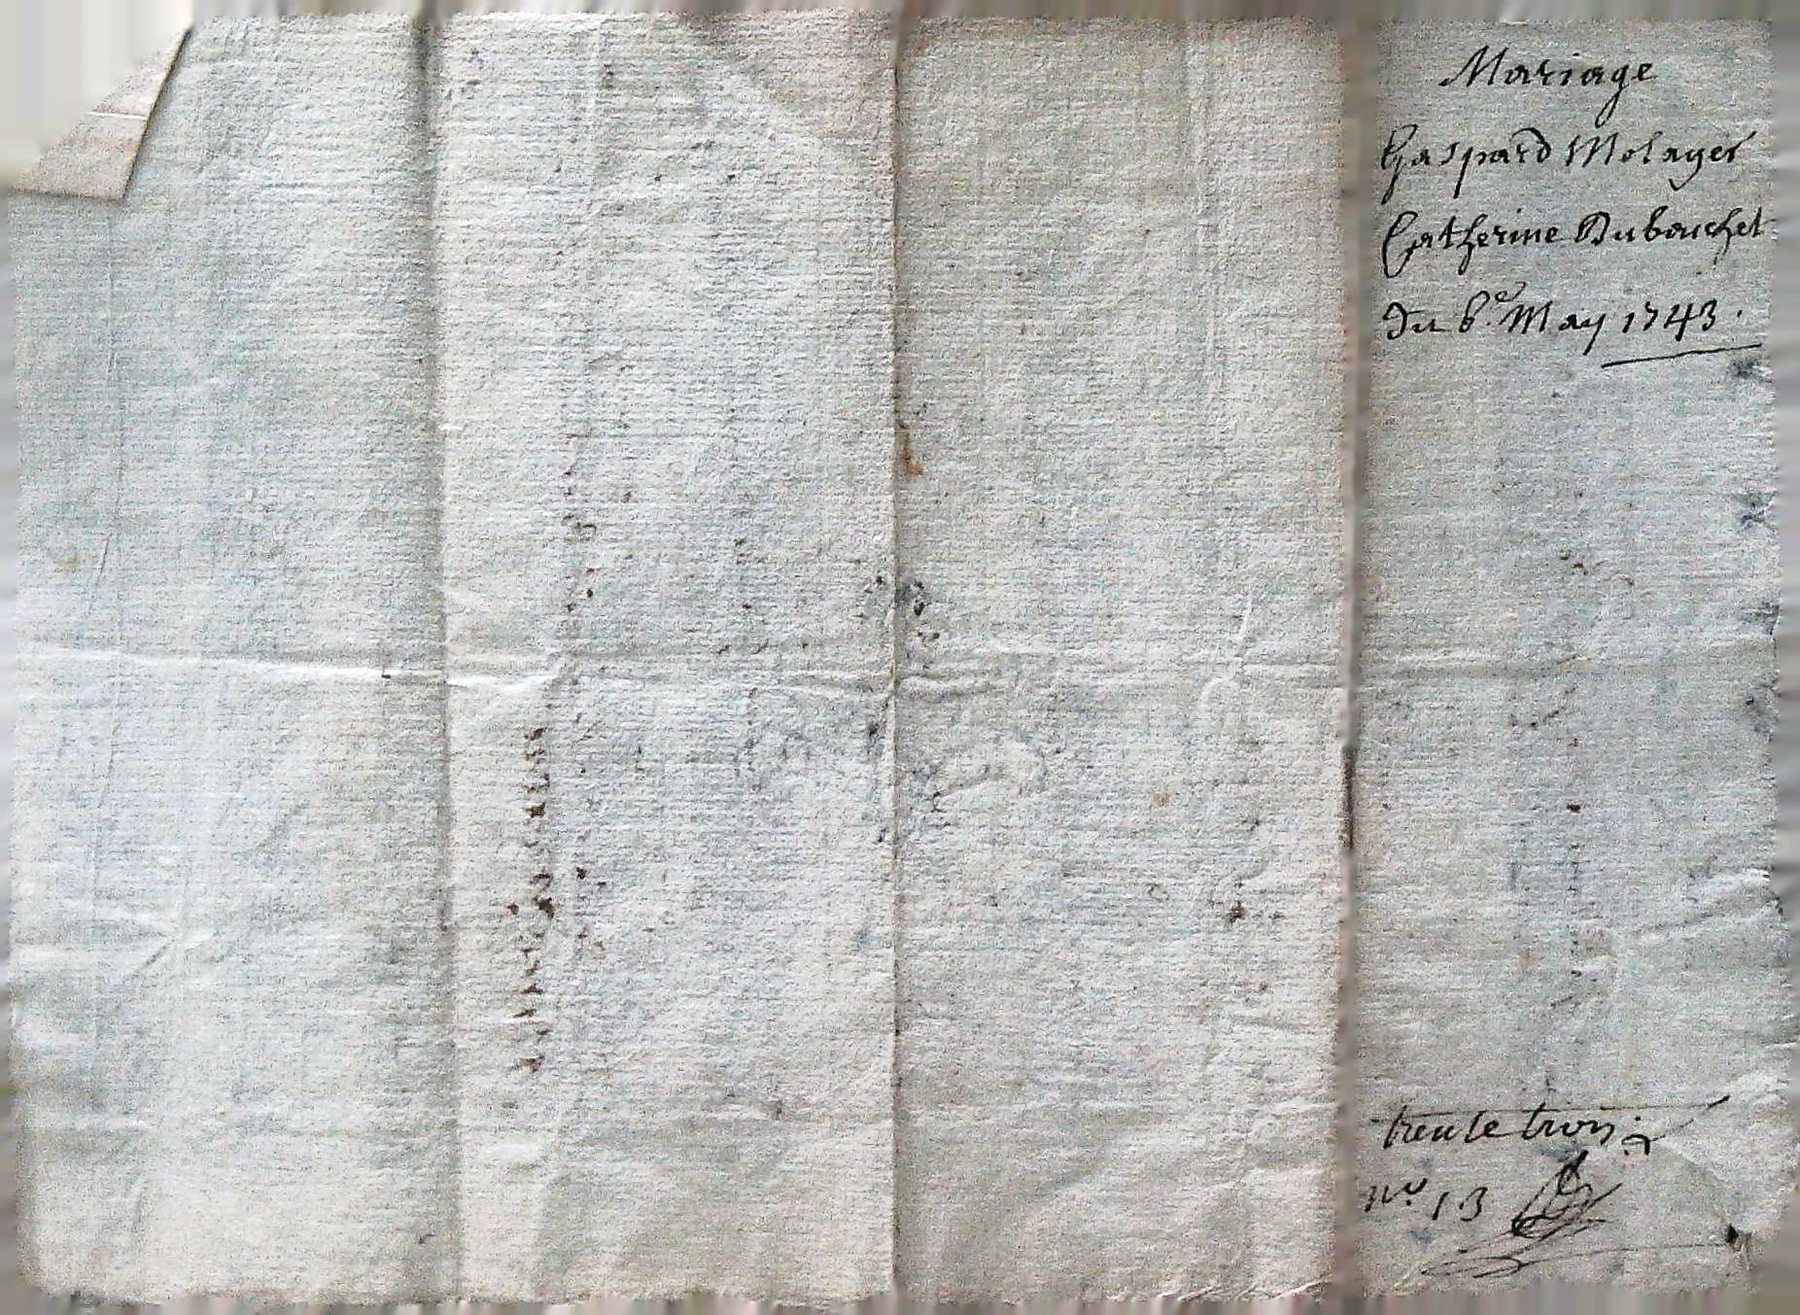 Mariage
Gaspard Molager
Catherine Dubouchet
Du 6.e May 1743.
trente trois
n.o 13